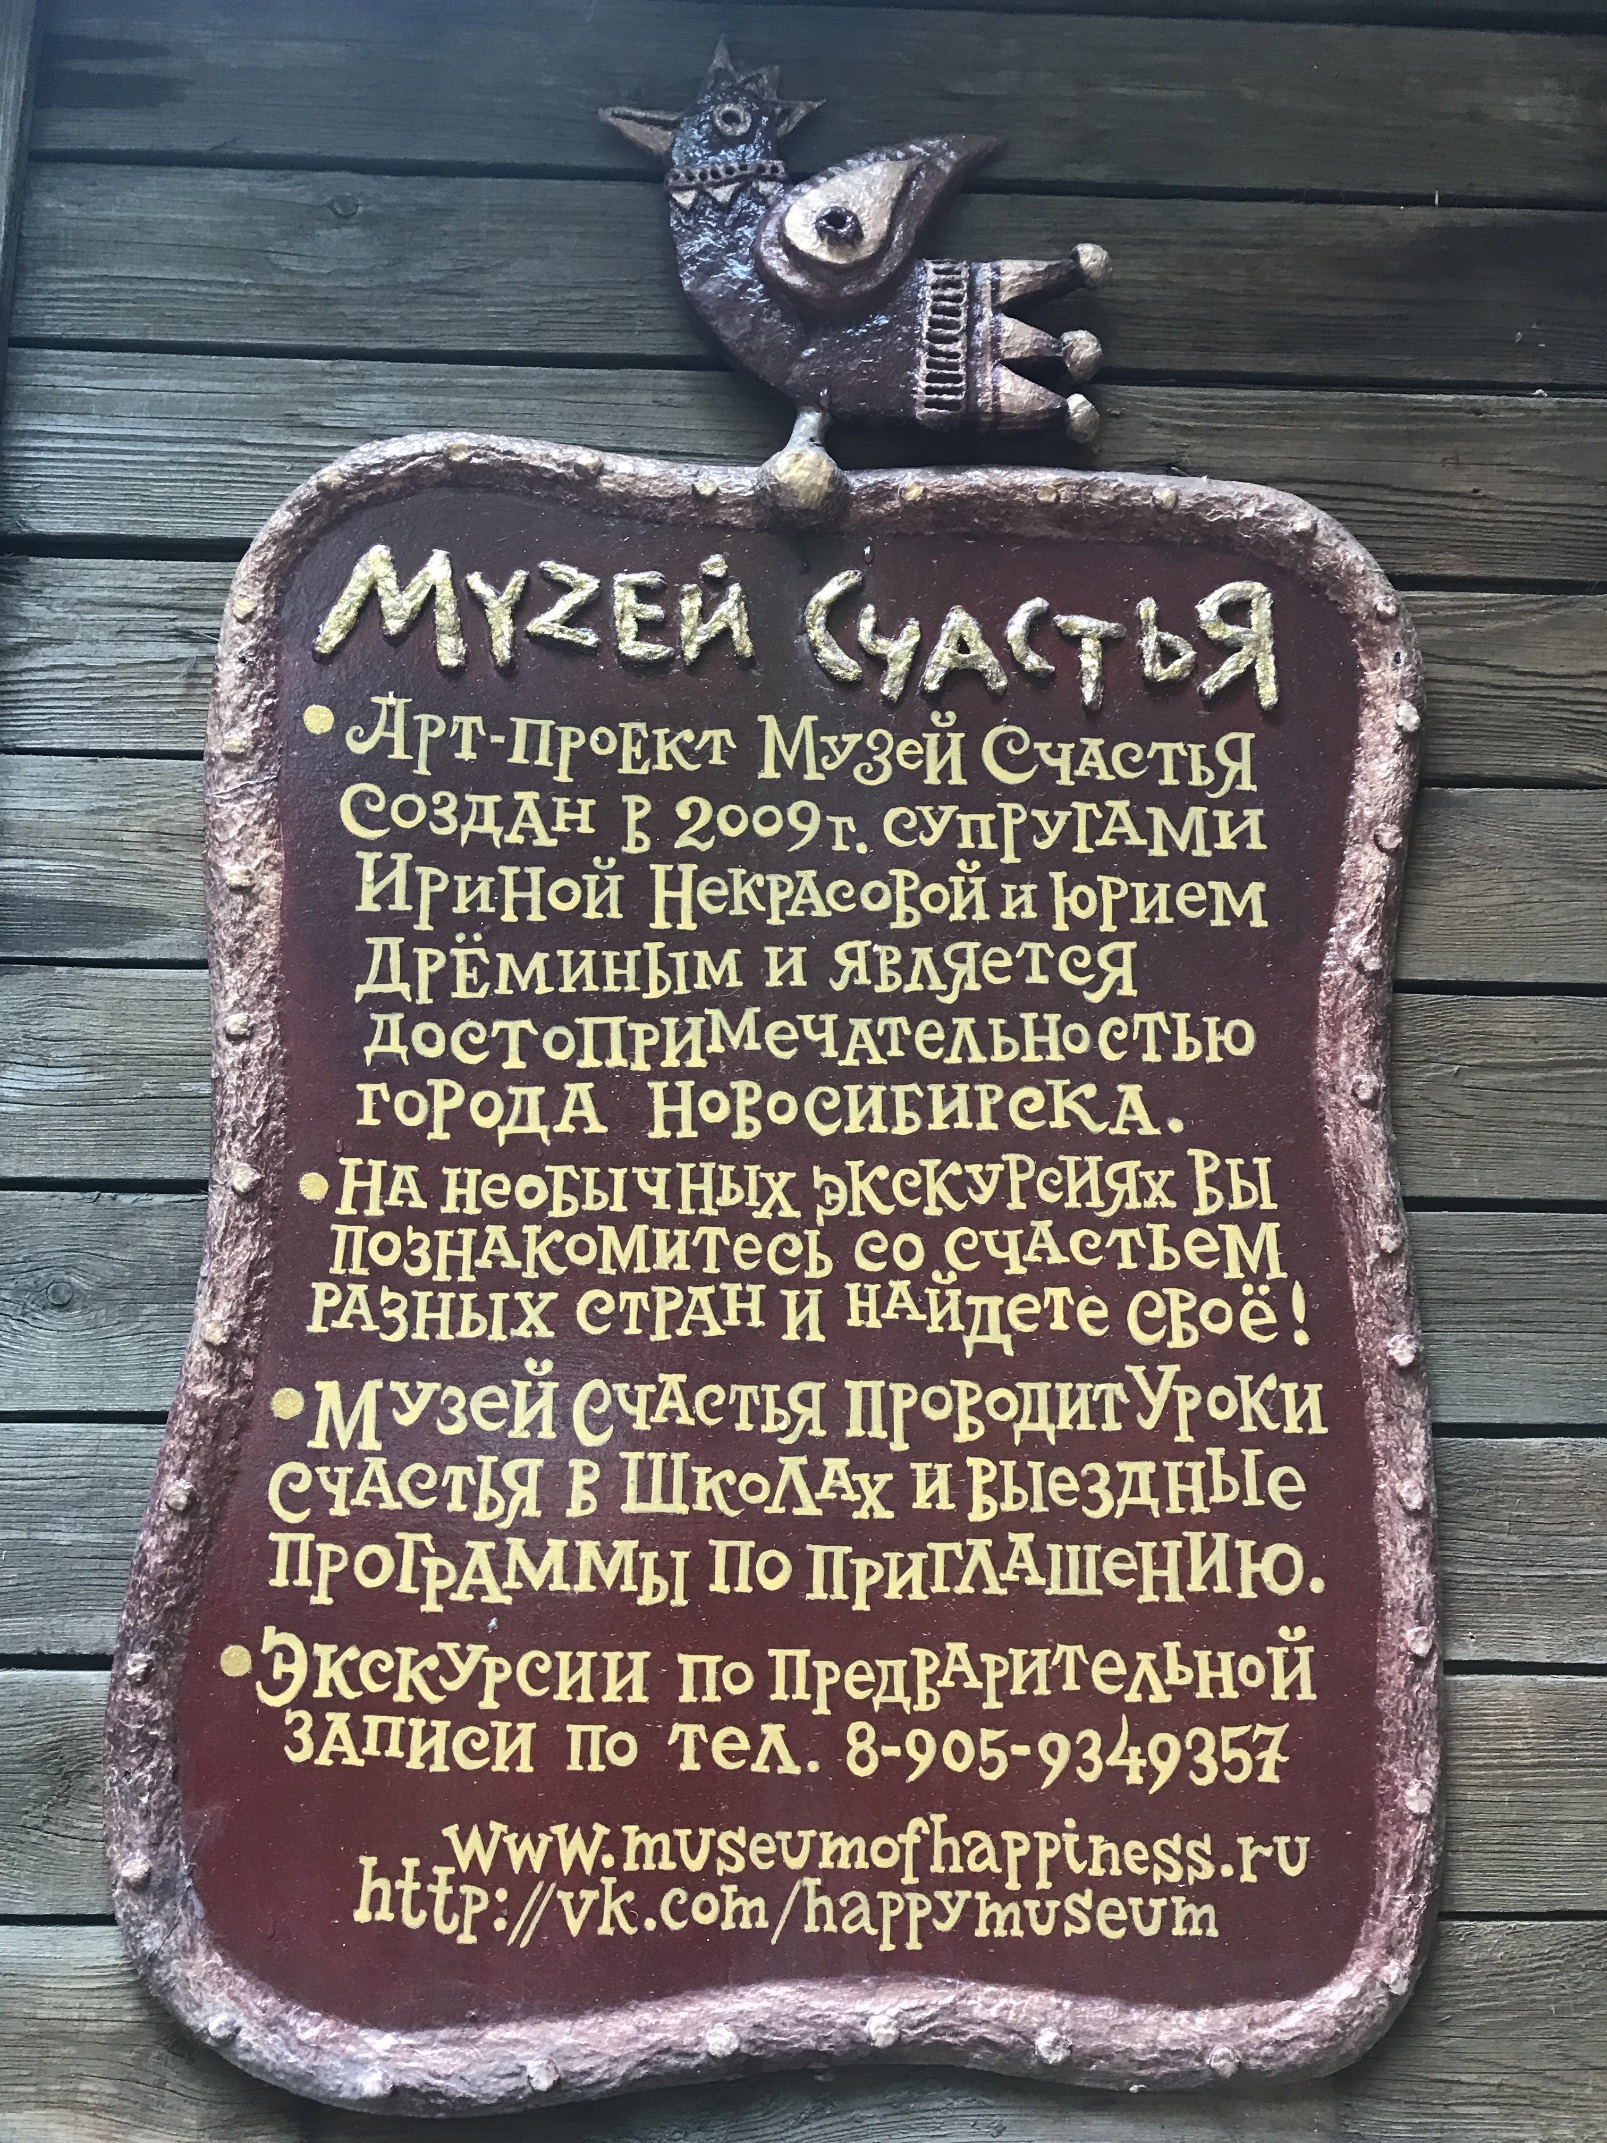 МУZЕЙ СЧАСТЬЯ
• Арт-проект Музей Счастья
создан в 2009г. супругами
Ириной Некрасовой и Юрием
Дрёминым и является
достопримечательностью
города Новосибирска.
• На необычных экскурсиях вы
познакомитесь со счастьем
разных стран и найдете своё!
• Музей Счастья проводит Уроки
счастья в школах и выездные
программы по приглашению.
• Экскурсии по предварительной
записи по тел. 8-905-9349357
www.museumofhappiness.ru
http://vk.com/happymuseum